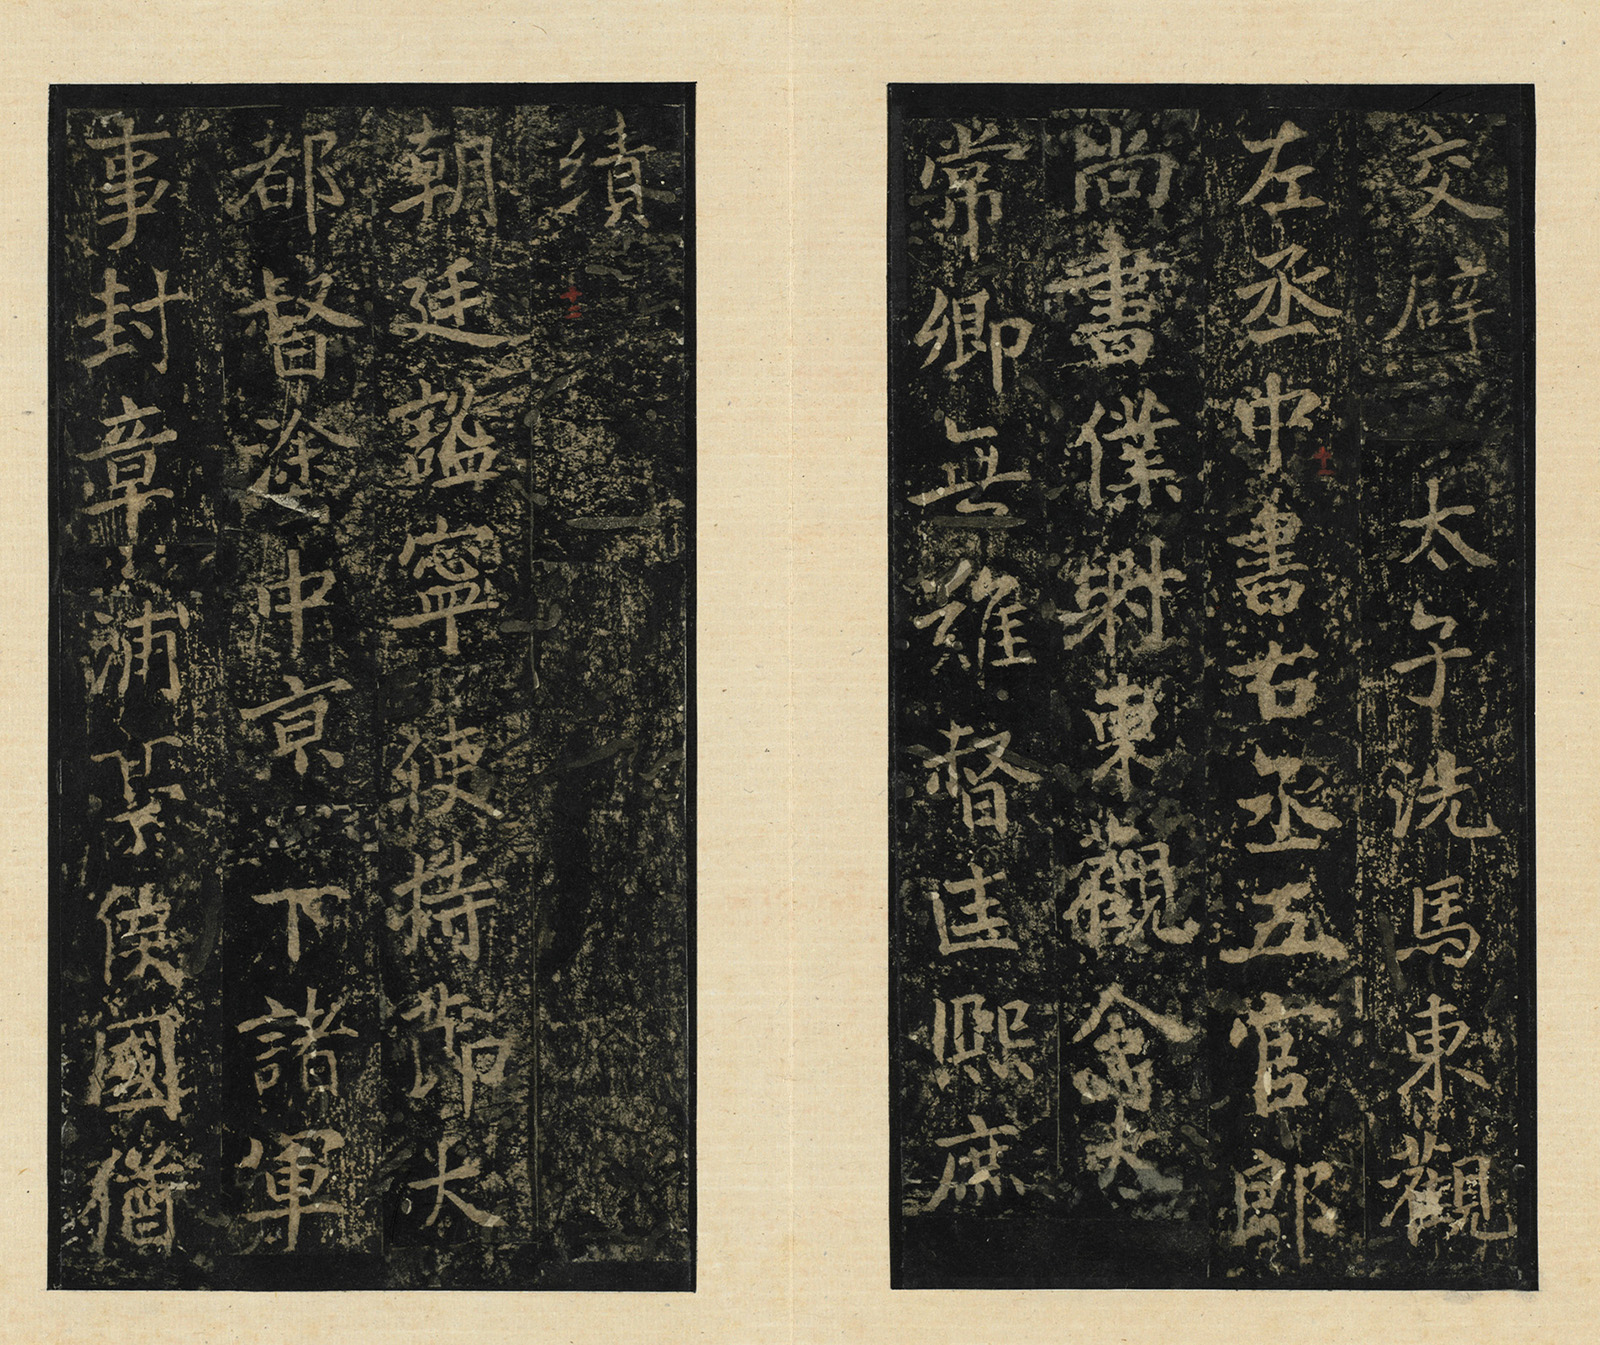 交辟太子洗馬東觀
左丞中書右丞五官郎
十二
尚書僕射東觀令太
常卿無難督匡熙庶
績
十三
朝廷謐寧使持節大
都督途中京下諸軍
事封章浦縣侯國猶